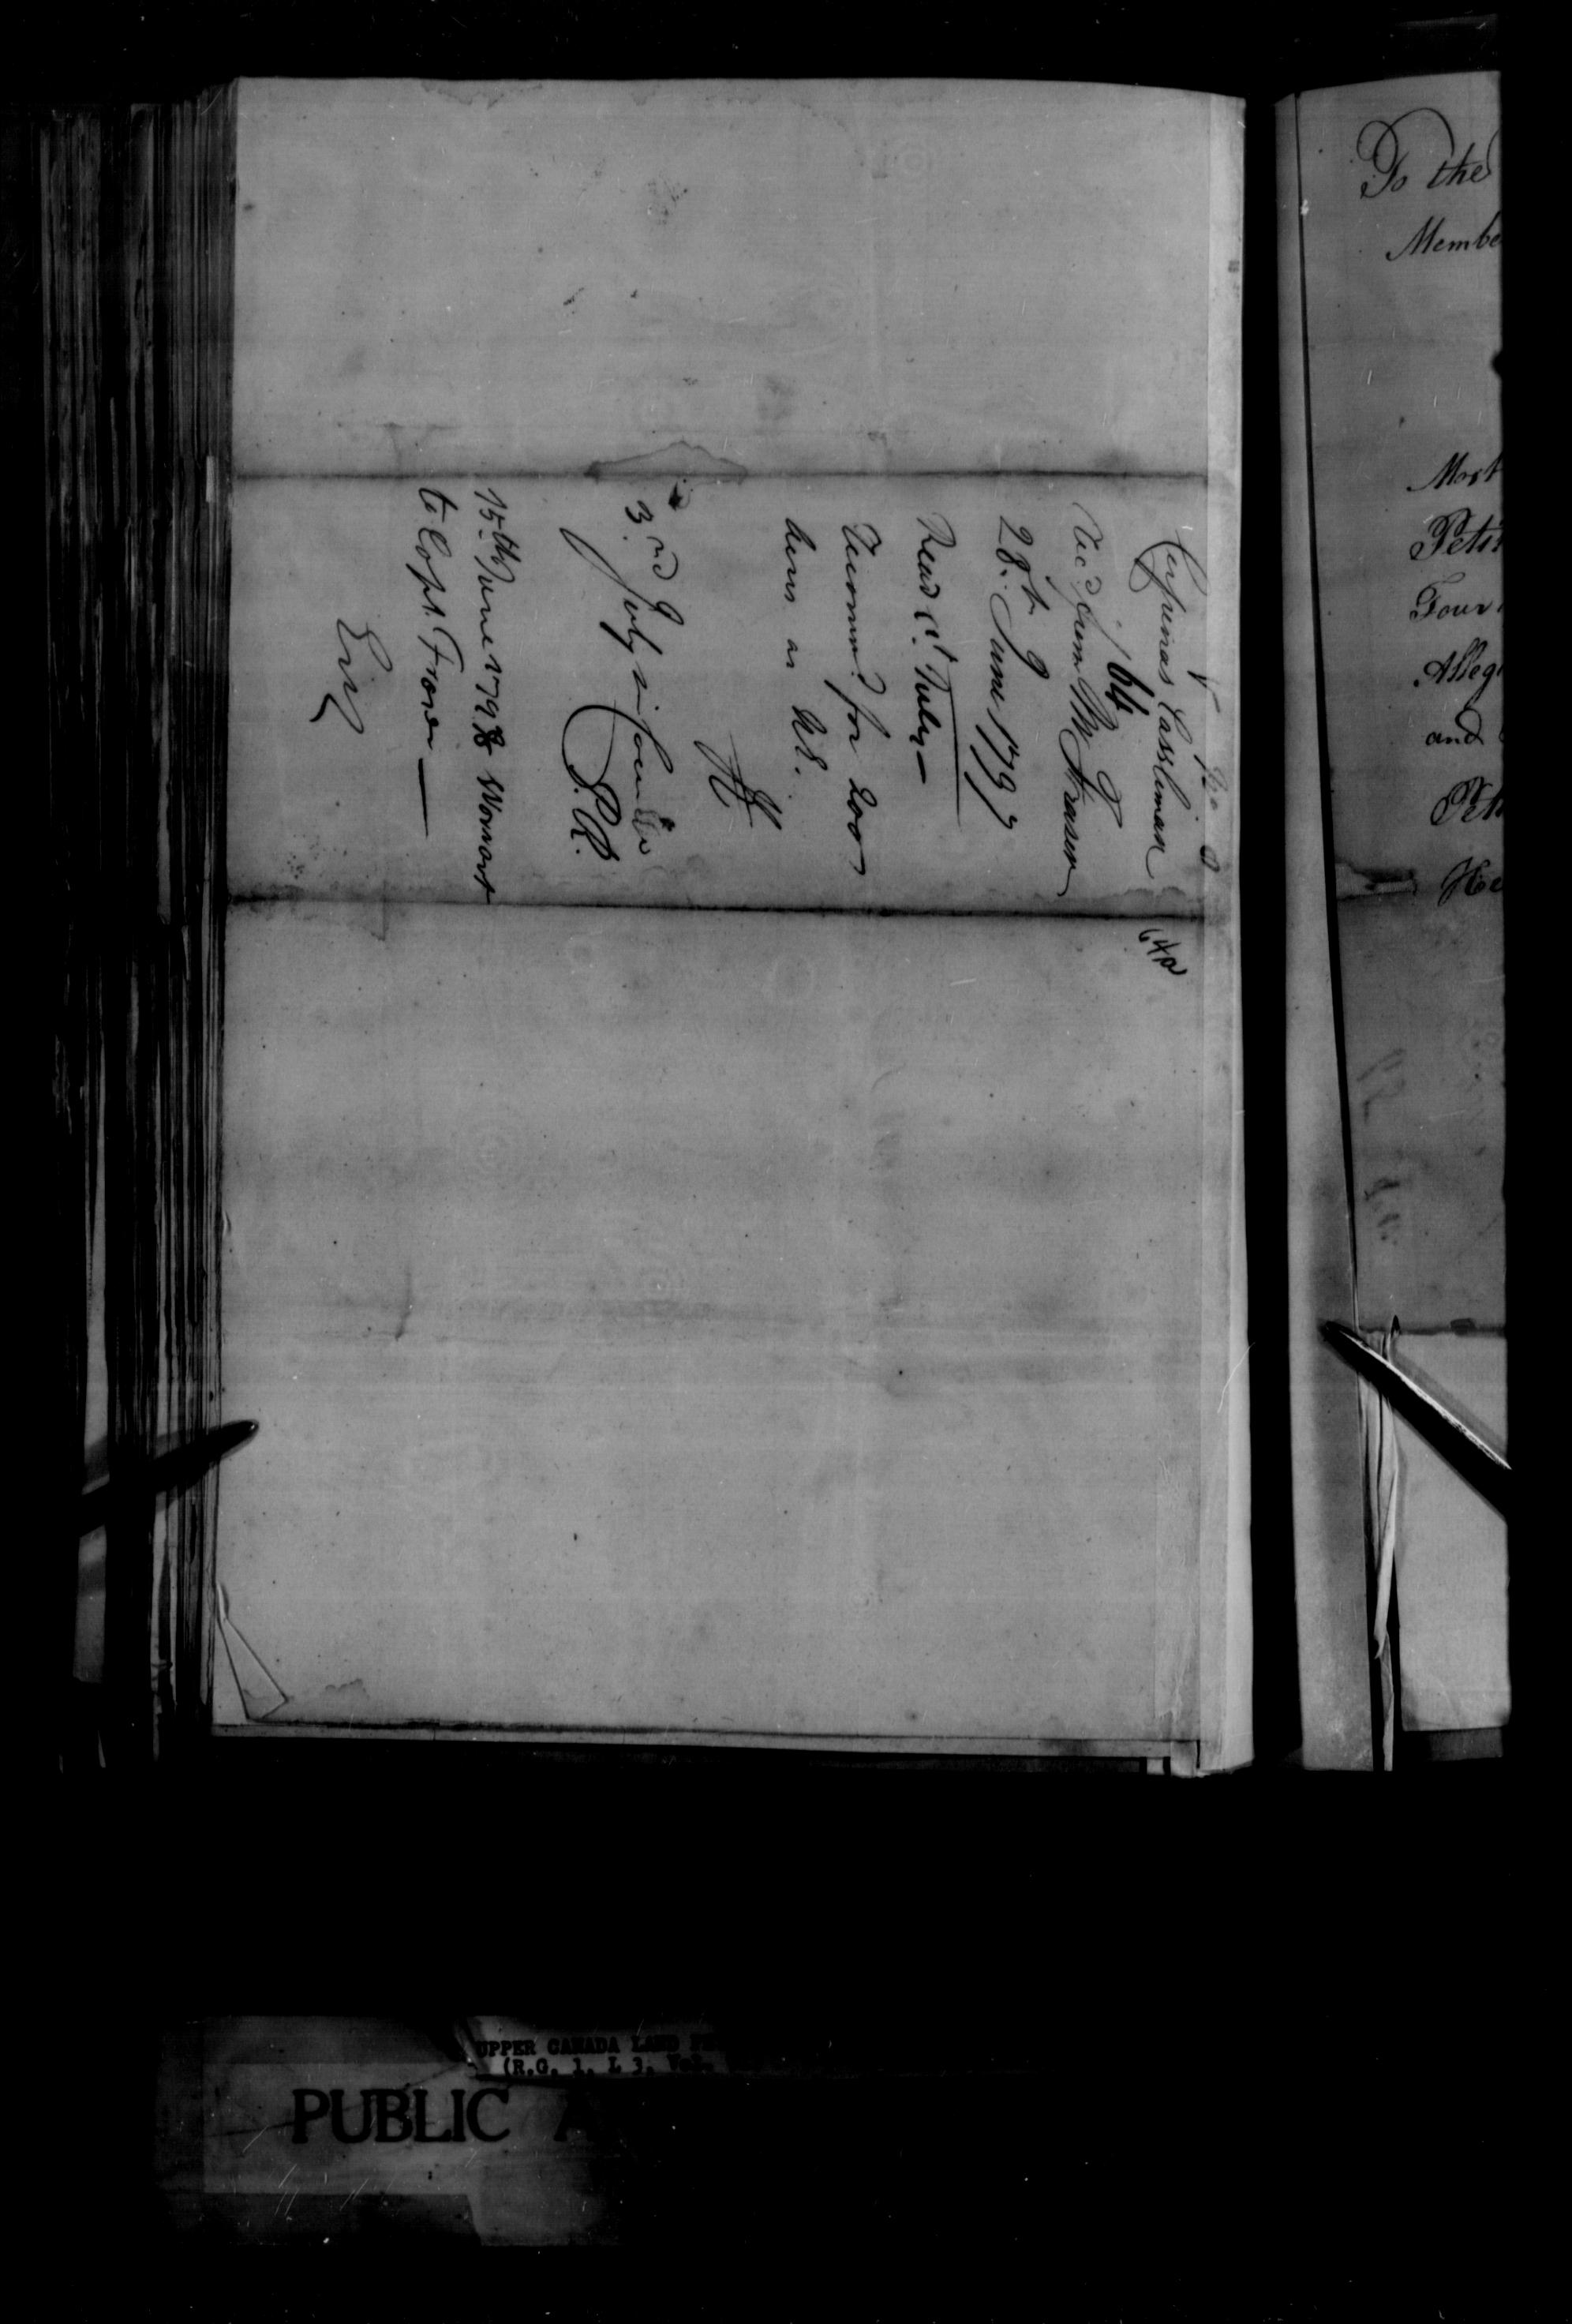 V No 3
Cephrinas Cassleman
64
Rec'd from Mr Fraser
28th June 1797
Read 1st July—
Recommd for 200
Acres as UE.
3rd July
P.R.
15th June 1798 Warrant
to Capt. Fraser—
Ent
64a
To the
Membe
Most
Peti
Four
Alleg
and
Pet
He
UPPER CANADA LAND PE
(R.G. 1, L 3, Vol.
PUBLIC A